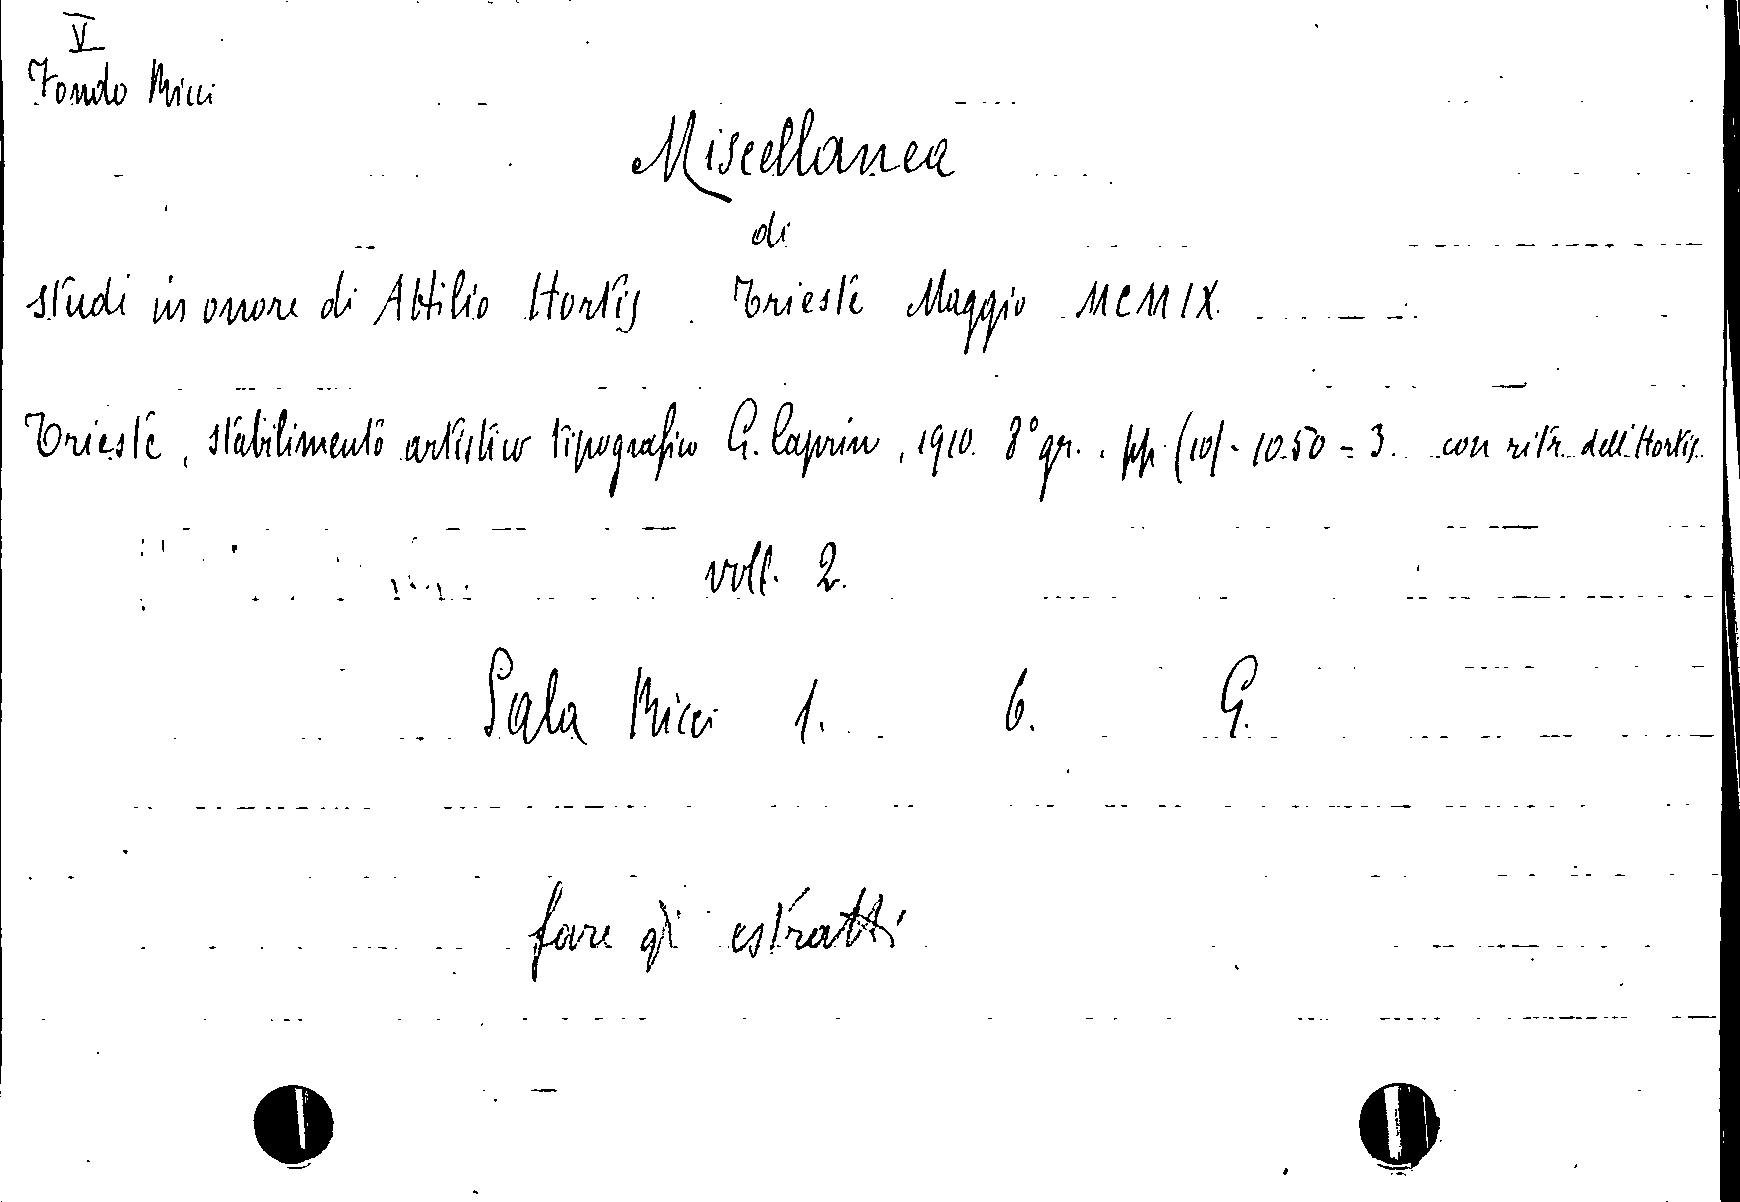 V
Fondo Ricci
Miscellanea
di
studi in onore di Attilio Hortis. Trieste Maggio MCMIX
Trieste, stabilimento artistico tipografico G. Caprin, 1910. 8° gr. pp. (10)-1050=3. con ritr. dell'Hortis
voll. 2.
Sala Ricci 1. 6. G.
fare gli estratti